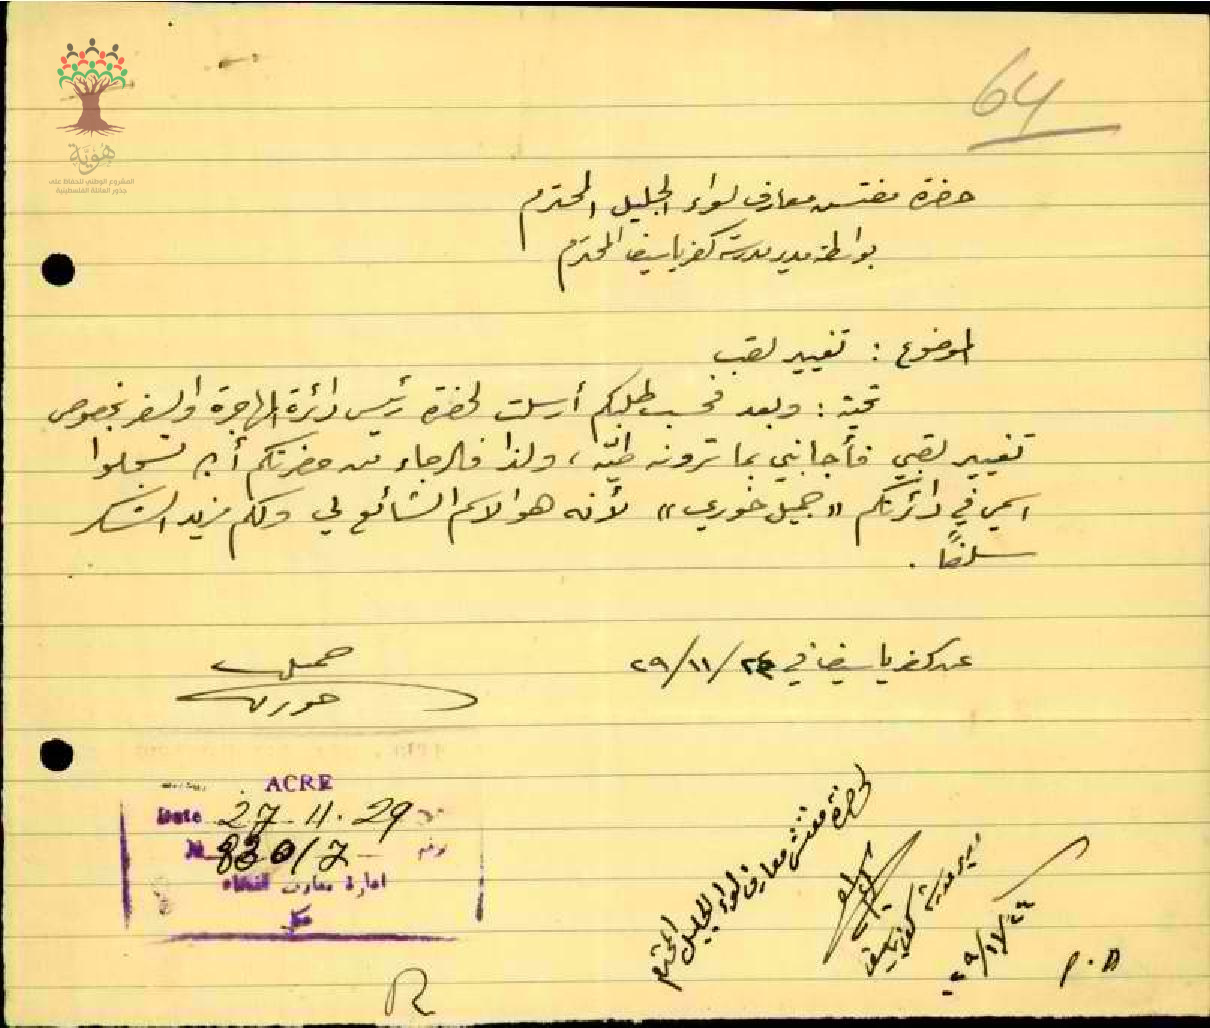 هُوِيَّة
المشروع الوطني للحفاظ على
جذور العائلة الفلسطينية
64
حضرة مفتش معارف لواء الجليل المحترم
بواسطة مدير مدرسة كفرياسيف المحترم
الموضوع : تغيير لقب
تحية : وبعد فحسب طلبكم أرسلت لحضرة رئيس دائرة المهاجرة والسفر بخصوص
تغيير لقبي فأجابني بما ترونه طيّه ، ولذا فالرجاء من حضرتكم أن تسجلوا
اسمي في دائرتكم « جميل خوري » لأنه هو الاسم الشائع لي ولكم مزيد الشكر
سلفًا .
كفرياسيف في ٢٦/١١/٢٩
جميل
خوري
ACRE
Date 27.11.29
N 830/7 رقم
ادارة معارف القضاء
عكا
لحضرة مفتش معارف لواء الجليل المحترم
مدير مدرسة كفرياسيف
٢٦/١١/٢٩
R